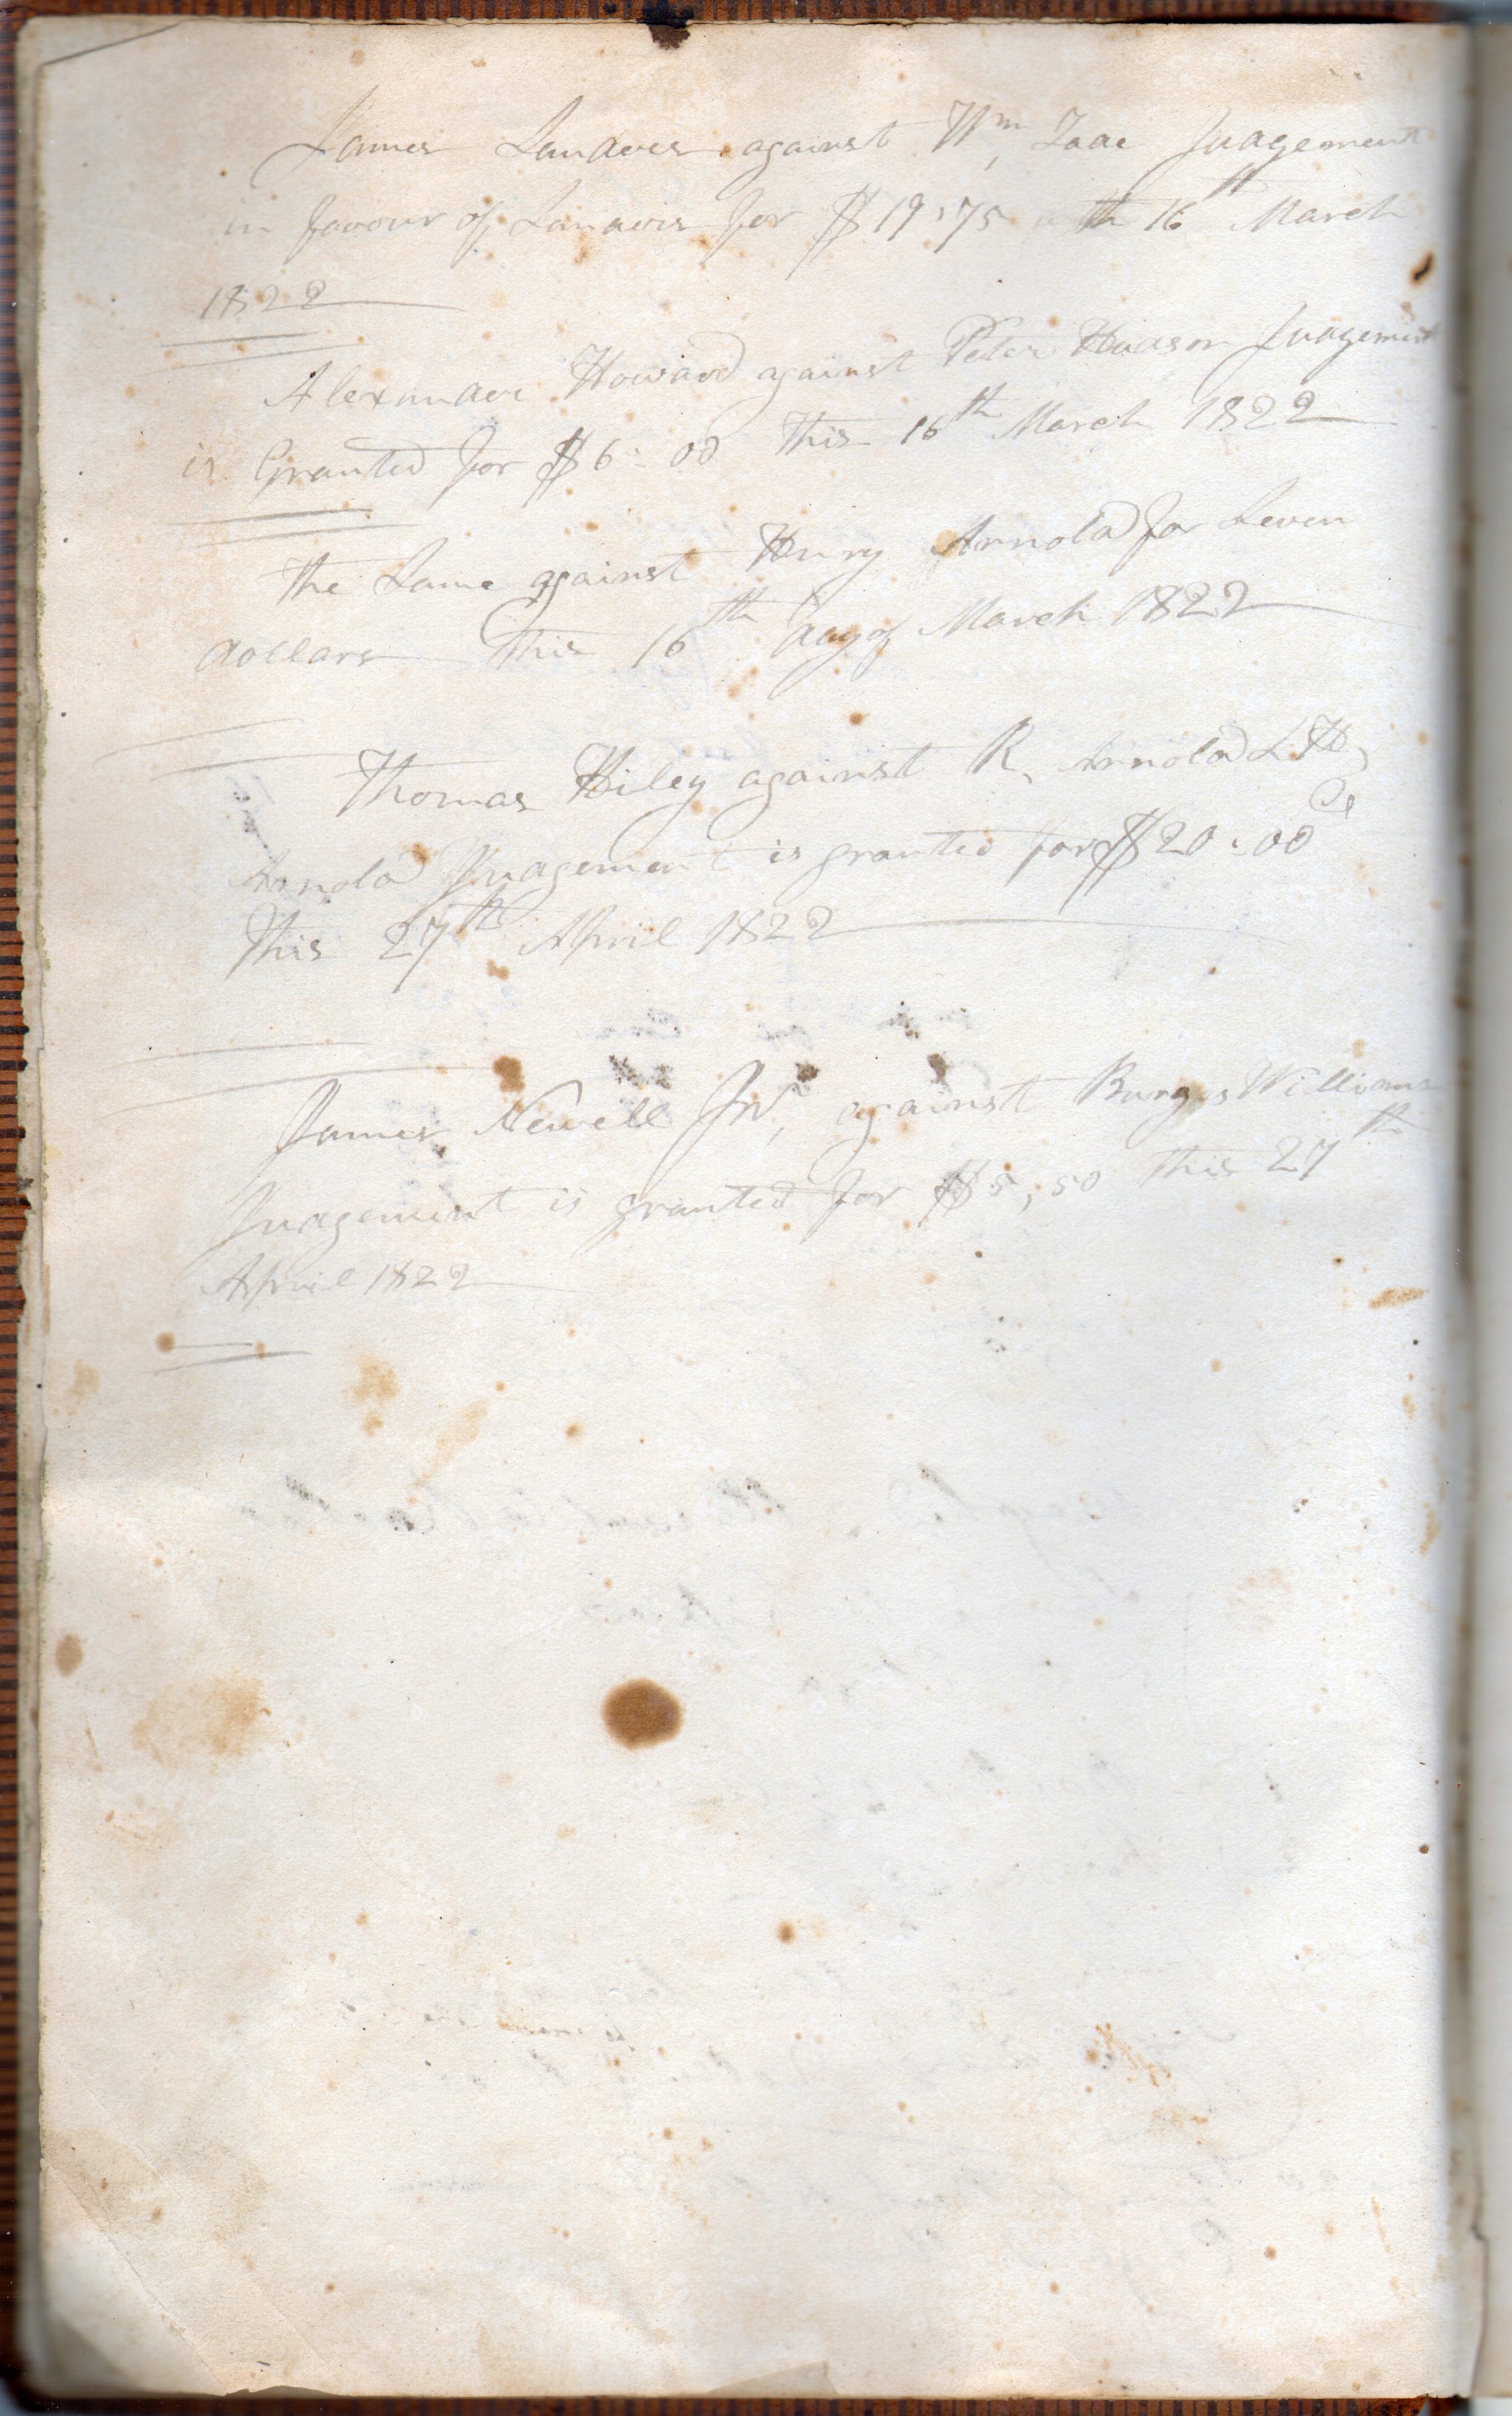 James Landers against Wm, Isac Judgement
in favour of Landers for $19,75 16th March
1822
Alexander Howard against Peter Hudson Judgement
is Granted for $6-00 This 16th March 1822
The Same against Henry Arnold for Seven
dollars This 16th day of March 1822
Thomas Hiley against R, Arnold & H,
Arnold Judgement is granted for $20-00 Cs
This 27th April 1822
James Newell Jnr, against Burges Williams
Judgement is granted for $5,50 This 27th
April 1822